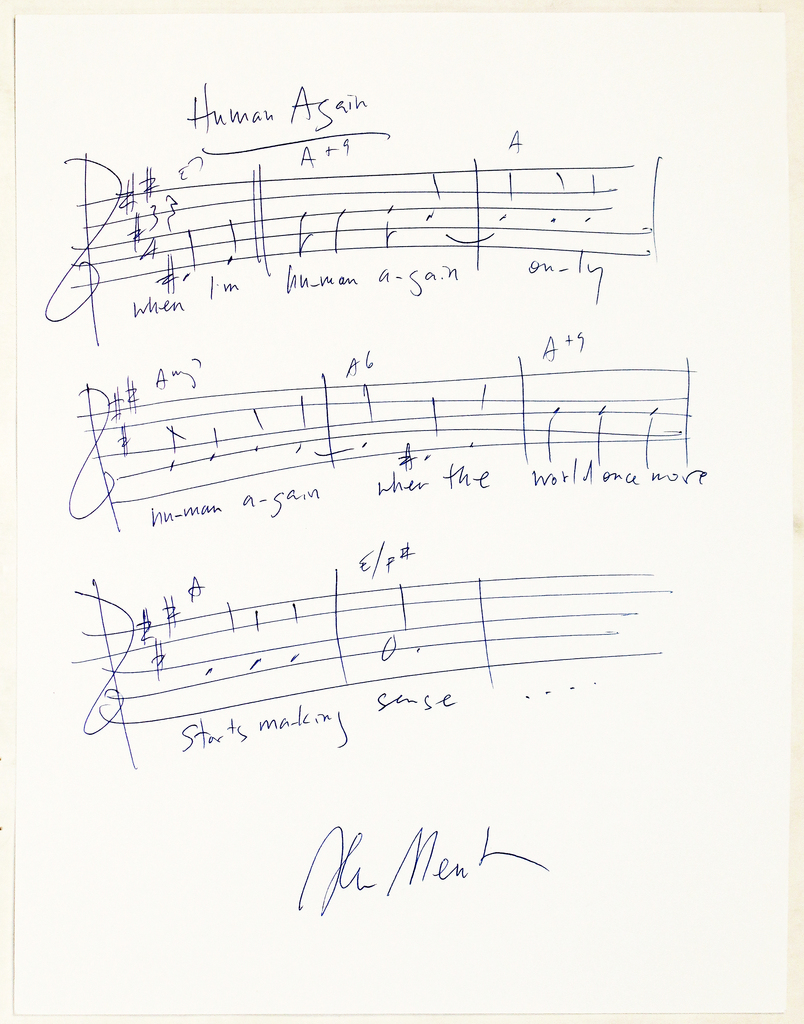 Human Again
E7 A+9 A
3
4
when I'm hu-man a-gain on-ly
Amj7 A6 A+9
hu-man a-gain when the world once more
A E/F#
Starts making sense ....